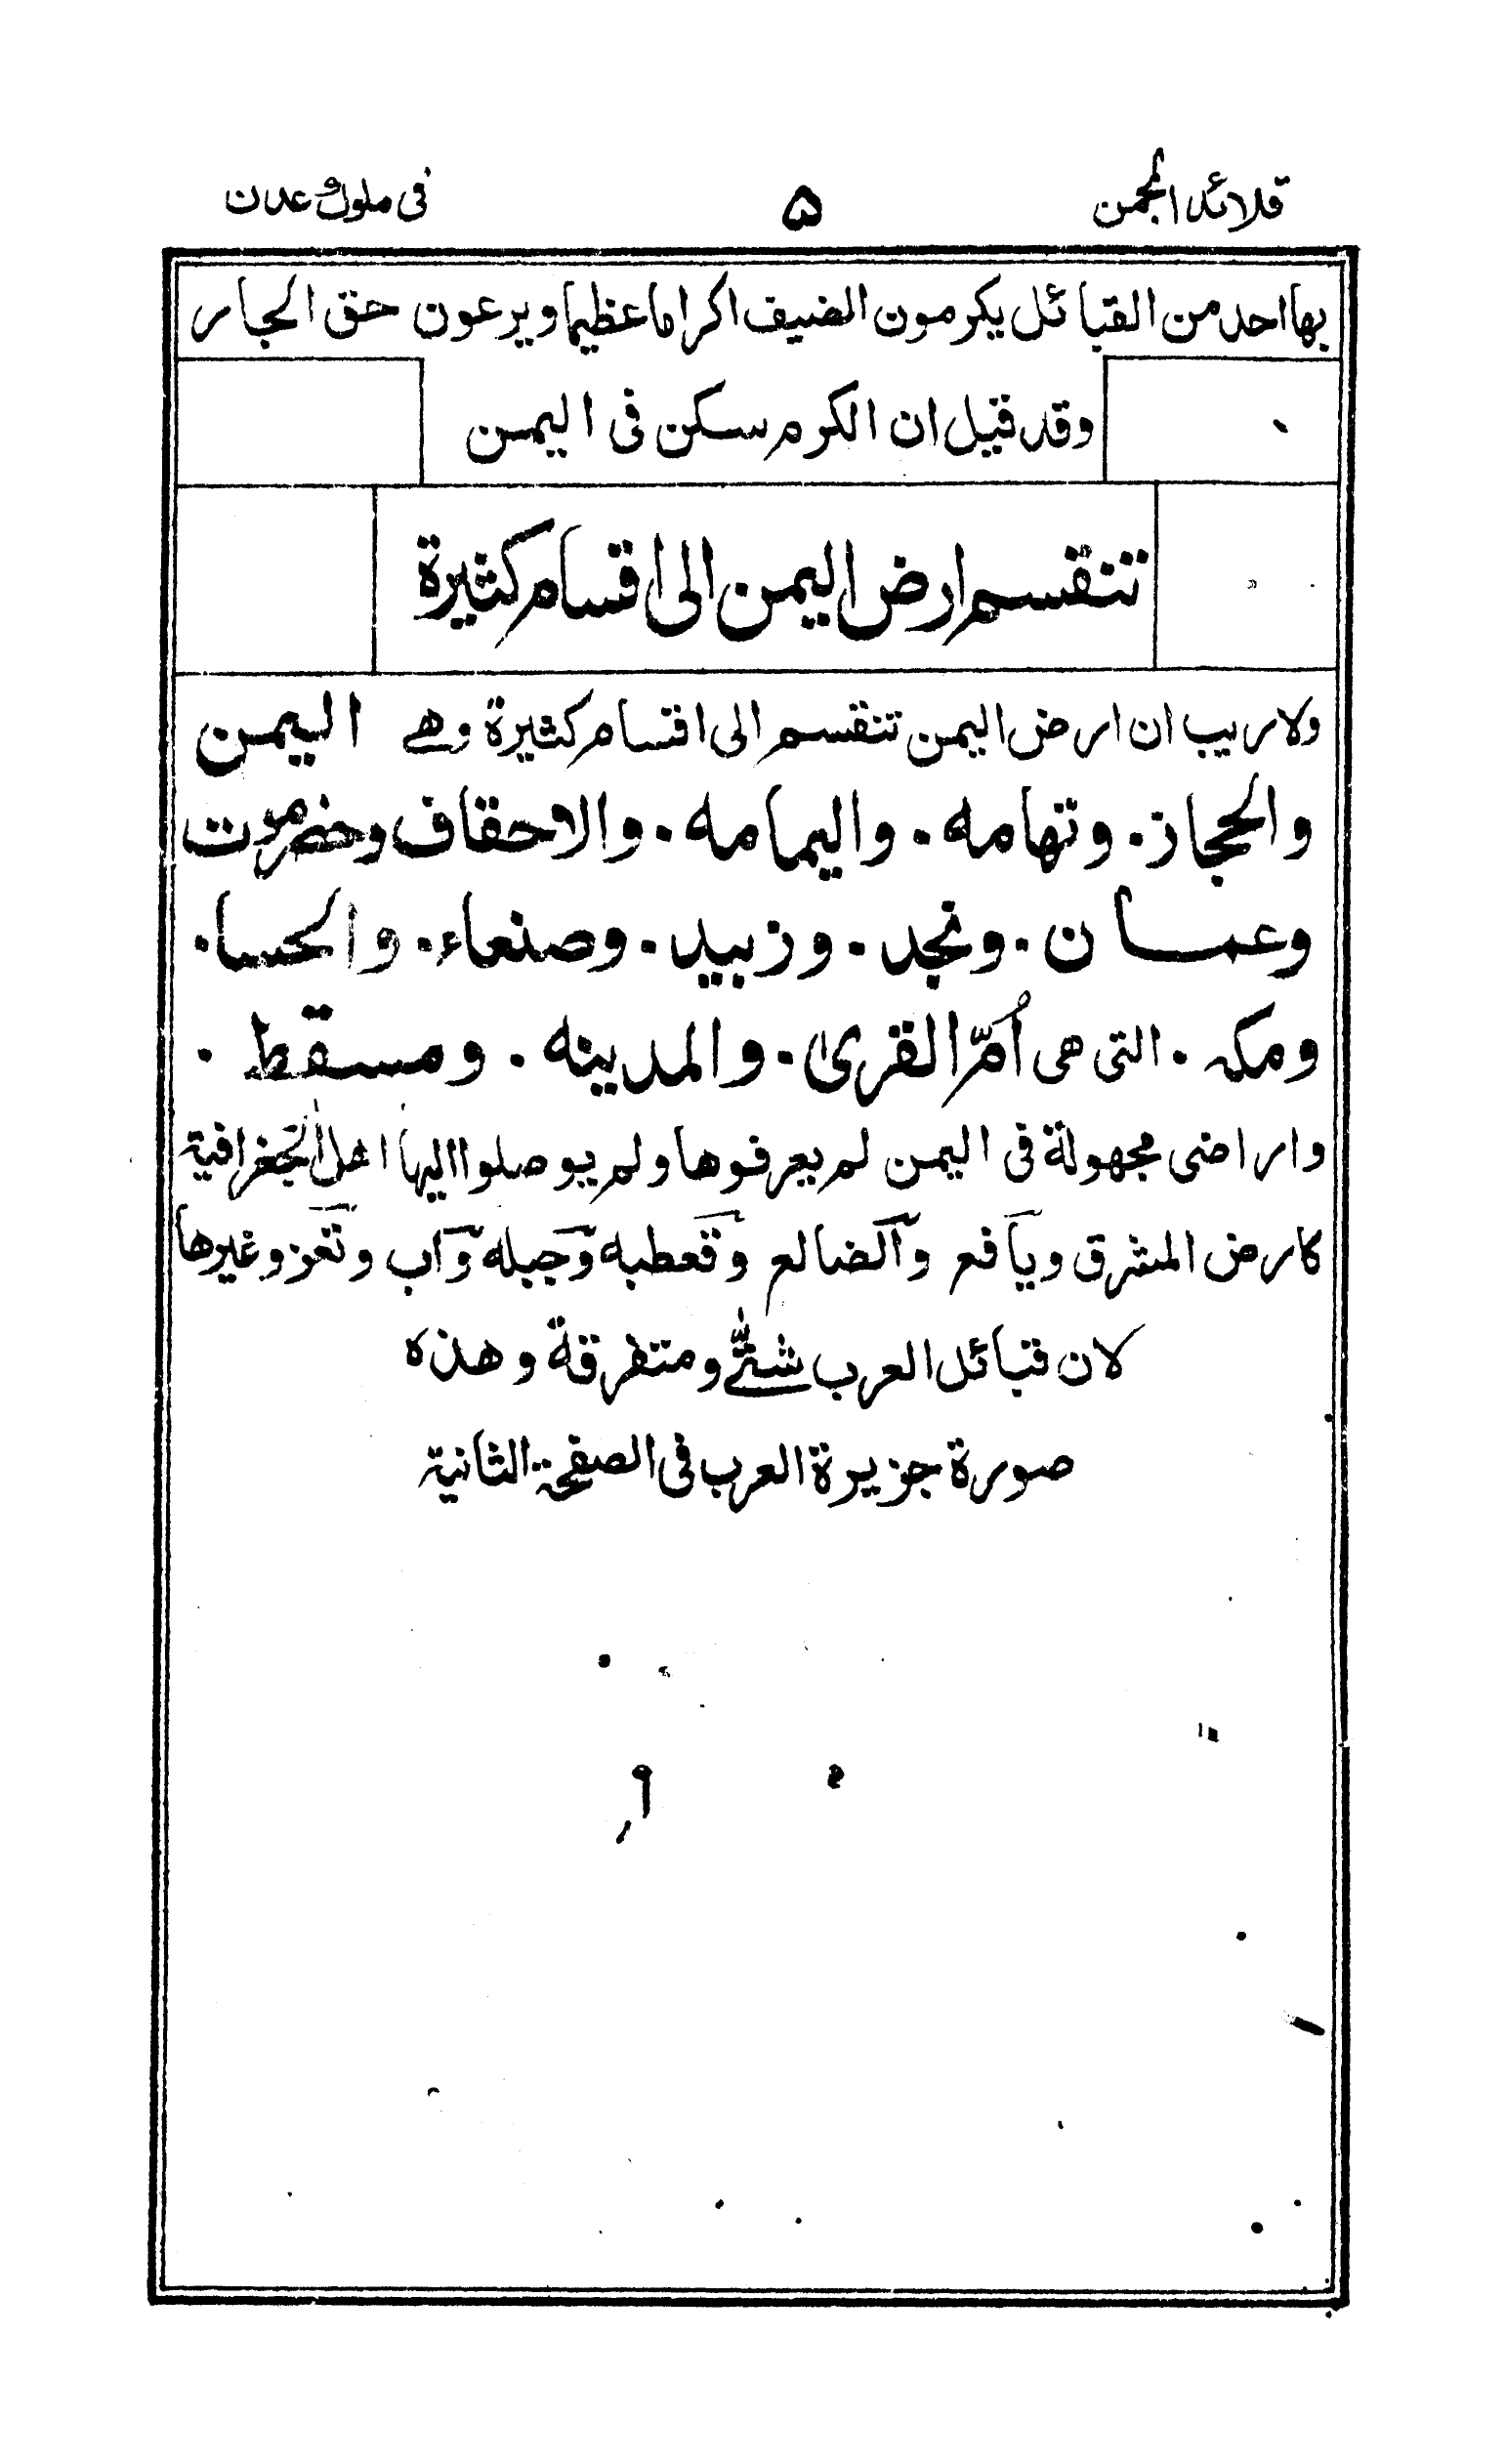 قلائد الجمن ۵ فی ملوك عدن
بها احد من القبائل يكرمون الضيف اكراما عظيما ويرعون حق الجار
وقد قيل ان الكرم سكن فى اليمن
تنقسم ارض اليمن الى اقسام كثيرة
ولاريب ان ارض اليمن تنقسم الى اقسام كثيرة وهے اليمن
والحجاز. وتهامه. واليمامه. والاحقاف وحضرموت
وعمان. ونجد. وزبيد. وصنعاء. والحسا.
ومكه. التى هى أُمّ القرىٰ. والمدينه. ومسقط.
واراضى مجهولة فى اليمن لم يعرفوها ولم يوصلوا اليها اهل الجغرافية
كارض المشرق ويافع والضالع وقعطبه وجبله وآب وتعز وغيرها
لان قبائل العرب شتّٰے ومتفرقة وهذه
صورة جزيرة العرب فى الصفحة الثانية